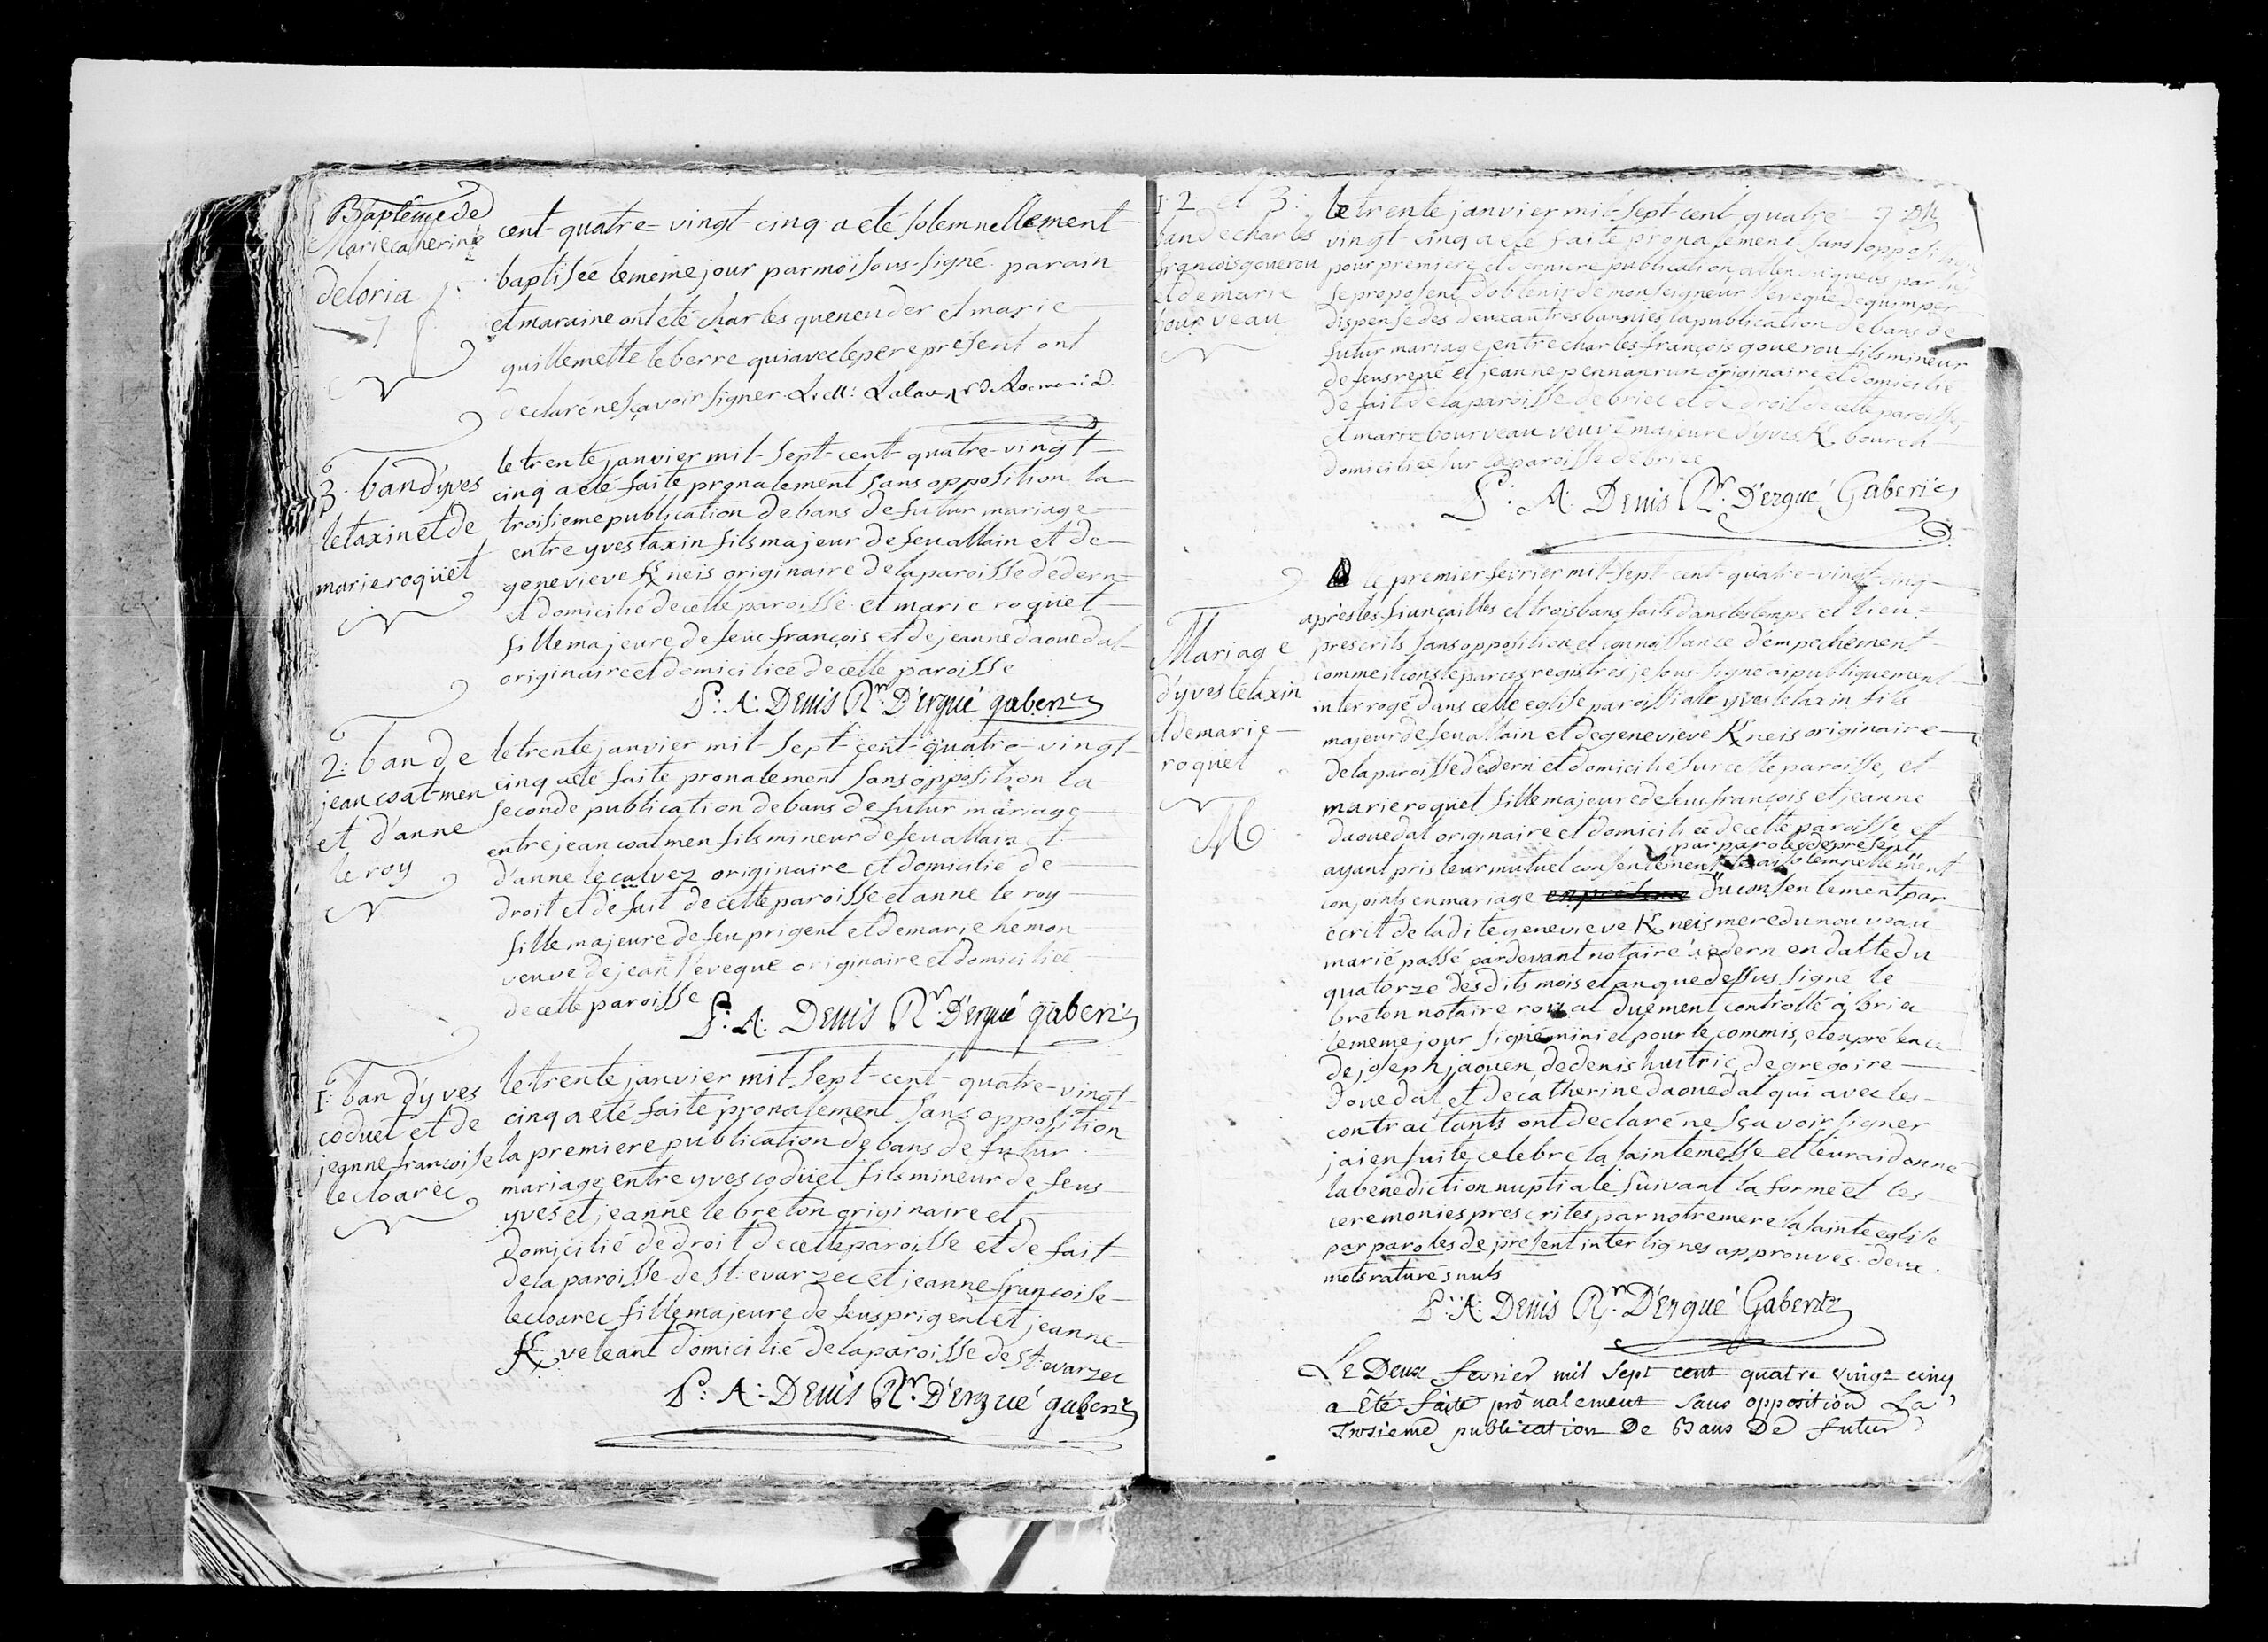 Baptême de
Marie catherine
deloria
cent quatre-vingt-cinq a eté solemnellement
baptisée le meme jour par moi sous-signé parain
et maraine ont eté charles queneuder et marie
guillemette le berre qui avec le pere présent ont
declaré ne sçavoir signer
3. ban d'yves
le taxin et de
marie roqüet
le trente janvier mil-sept-cent-quatre-vingt-
cinq a eté faite prônalement sans opposition la
troisieme publication de bans de futur mariage
entre yves taxin fils majeur de feu allain et de
genevieve K neis originaire de la paroisse d'édern
et domicilié de cette paroisse et marie roqüet
fille majeure de feu françois et de jeanne daouedal
originaire et domiciliée de cette paroisse
P: A: Denis Rr. D'ergué gaberic
2: ban de
jean coatmen
et d'anne
le roy
le trente janvier mil-sept-cent-quatre-vingt-
cinq a eté faite prônalement sans opposition la
seconde publication de bans de futur mariage
entre jean coatmen fils mineur de feu allain et
d'anne le calvez originaire et domicilié de
droit et de fait de cette paroisse et anne le roy
fille majeure de feu prigent et de marie hemon
veuve de jean l'eveque originaire et domiciliée
de cette paroisse
P: A: Denis Rr. D'ergué gaberic
1: ban d'yves
coduet et de
jeanne françoise
le cloarec
le trente janvier mil-sept-cent-quatre-vingt-
cinq a eté faite prônalement sans opposition
la premiere publication de bans de futur
mariage entre yves codüet fils mineur de feus
yves et jeanne le breton originaire et
domicilié de droit de cette paroisse et de fait
de la paroisse de St: evarzec et jeanne françoise
le cloarec fille majeure de feus prigent et jeanne
K veleant domicilié de la paroisse de St: evarzec
P: A: Denis Rr. D'ergué gaberic
1 2 et 3:
ban de charles
françois gouerou
et de marie
bourveau
le trente janvier mil-sept-cent-quatre-
vingt-cinq a eté faite prônalement sans opposition
pour premiere et derniere publication attendu que les parties
se proposent d'obtenir de monseigneur l'eveque de quimper
dispense des deux autres bannies la publication de bans de
futur mariage entre charles françois gouerou fils mineur
de feus rené et jeanne pennanrun originaire et domicilié
de fait de la paroisse de briec et de droit de cette paroisse
et marie bourveau veuve majeure d'yves K bourch
domiciliée sur la paroisse de briec
P: A: Denis Rr. D'ergué Gaberic
Mariage
d'yves le taxin
et de marie
roquet
M
le premier fevrier mil-sept-cent-quatre-vingt-cinq
après les fiançailles et trois bans faits dans les temps et lieu
prescrits sans opposition et connoissance d'empechement
comme il conste par ces registres je sous-signé ai publiquement
interrogé dans cette eglise paroissiale yves le taxin fils
majeur de feu allain et de genevieve K neis originaire
de la paroisse d'édern et domicilié sur cette paroisse, et
marie roqüet fille majeure de feus françois et jeanne
daouedal originaire et domiciliée de cette paroisse et
par paroles de present
ayant pris leur mutuel consentement les ai solemnellement
conjoints en mariage en présence du consentement par
ecrit de la dite genevieve K neis mere du nouveau
marié passé par devant notaire à edern en datte du
quatorze des dits mois et an que dessus signé le
breton notaire royal duëment controllé à briec
le meme jour signé miniel pour le commis, et en présence
de joseph jaouen, de denis hustric, de gregoire
douedal, et de catherine daouedal qui avec les
contractants ont declaré ne sçavoir signer
jai ensuite celebré la sainte messe et leur ai donné
la benediction nuptiale suivant la forme et les
ceremonies prescrites par notre mere la sainte eglise
par paroles de present interlignes approuvés. deux
mots raturés nuls
P: A: Denis Rr. D'Ergué Gaberic
Le Deux fevrier mil sept cent quatre vingt cinq
a êté faite prônalement sans opposition La
Troisieme publication De Bans De futur